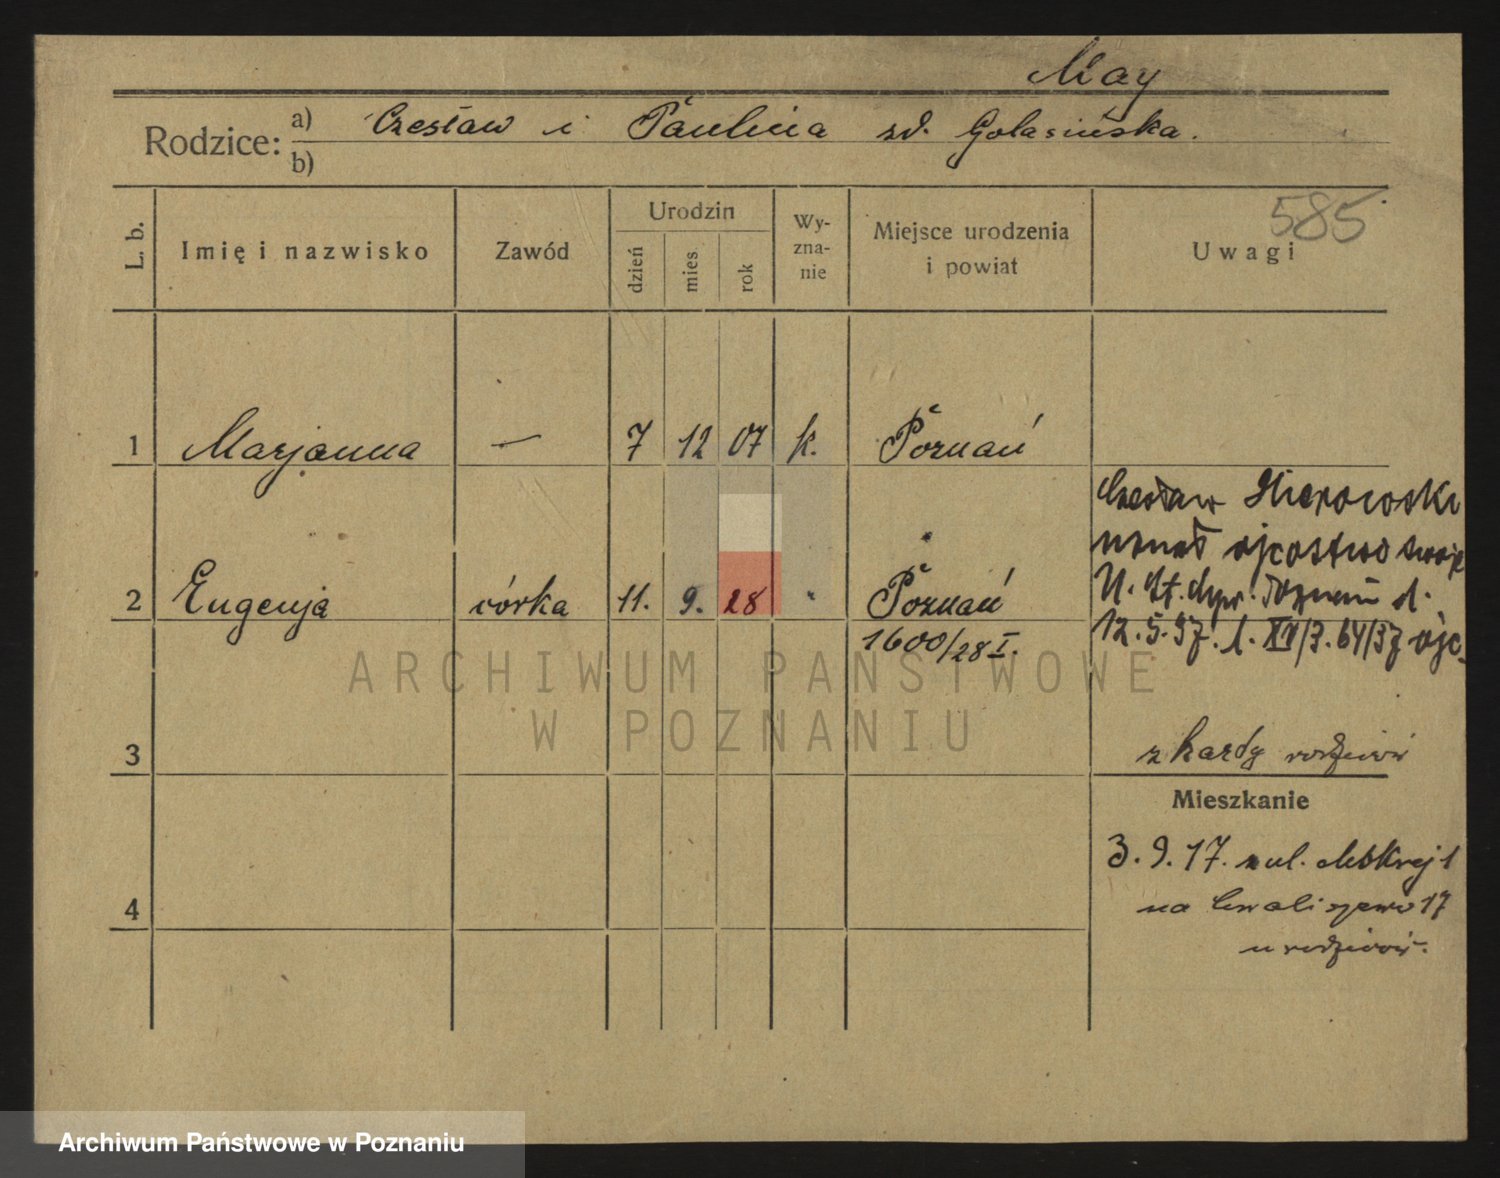 May
Rodzice: a) Czesław i Paulina zd. Golasińska.
b)
585
L. b.
Imię i nazwisko
Zawód
Urodzin
dzień
mies
rok
Wy-
zna-
nie
Miejsce urodzenia
i powiat
Uwagi
1 Marjanna — 7 12 07 k. Poznań
2 Eugenja córka 11. 9. 28 " Poznań
1600/28 I.
Czesław
uznał ojcostwo swoje
12.5.37. l. XV/3.64/37 ojc.
3
z karty rodziców
Mieszkanie
3.9.17. z ul. Mokrej 1
na Chwaliszewo 17
u rodziców.
4
ARCHIWUM PAŃSTWOWE
W POZNANIU
Archiwum Państwowe w Poznaniu